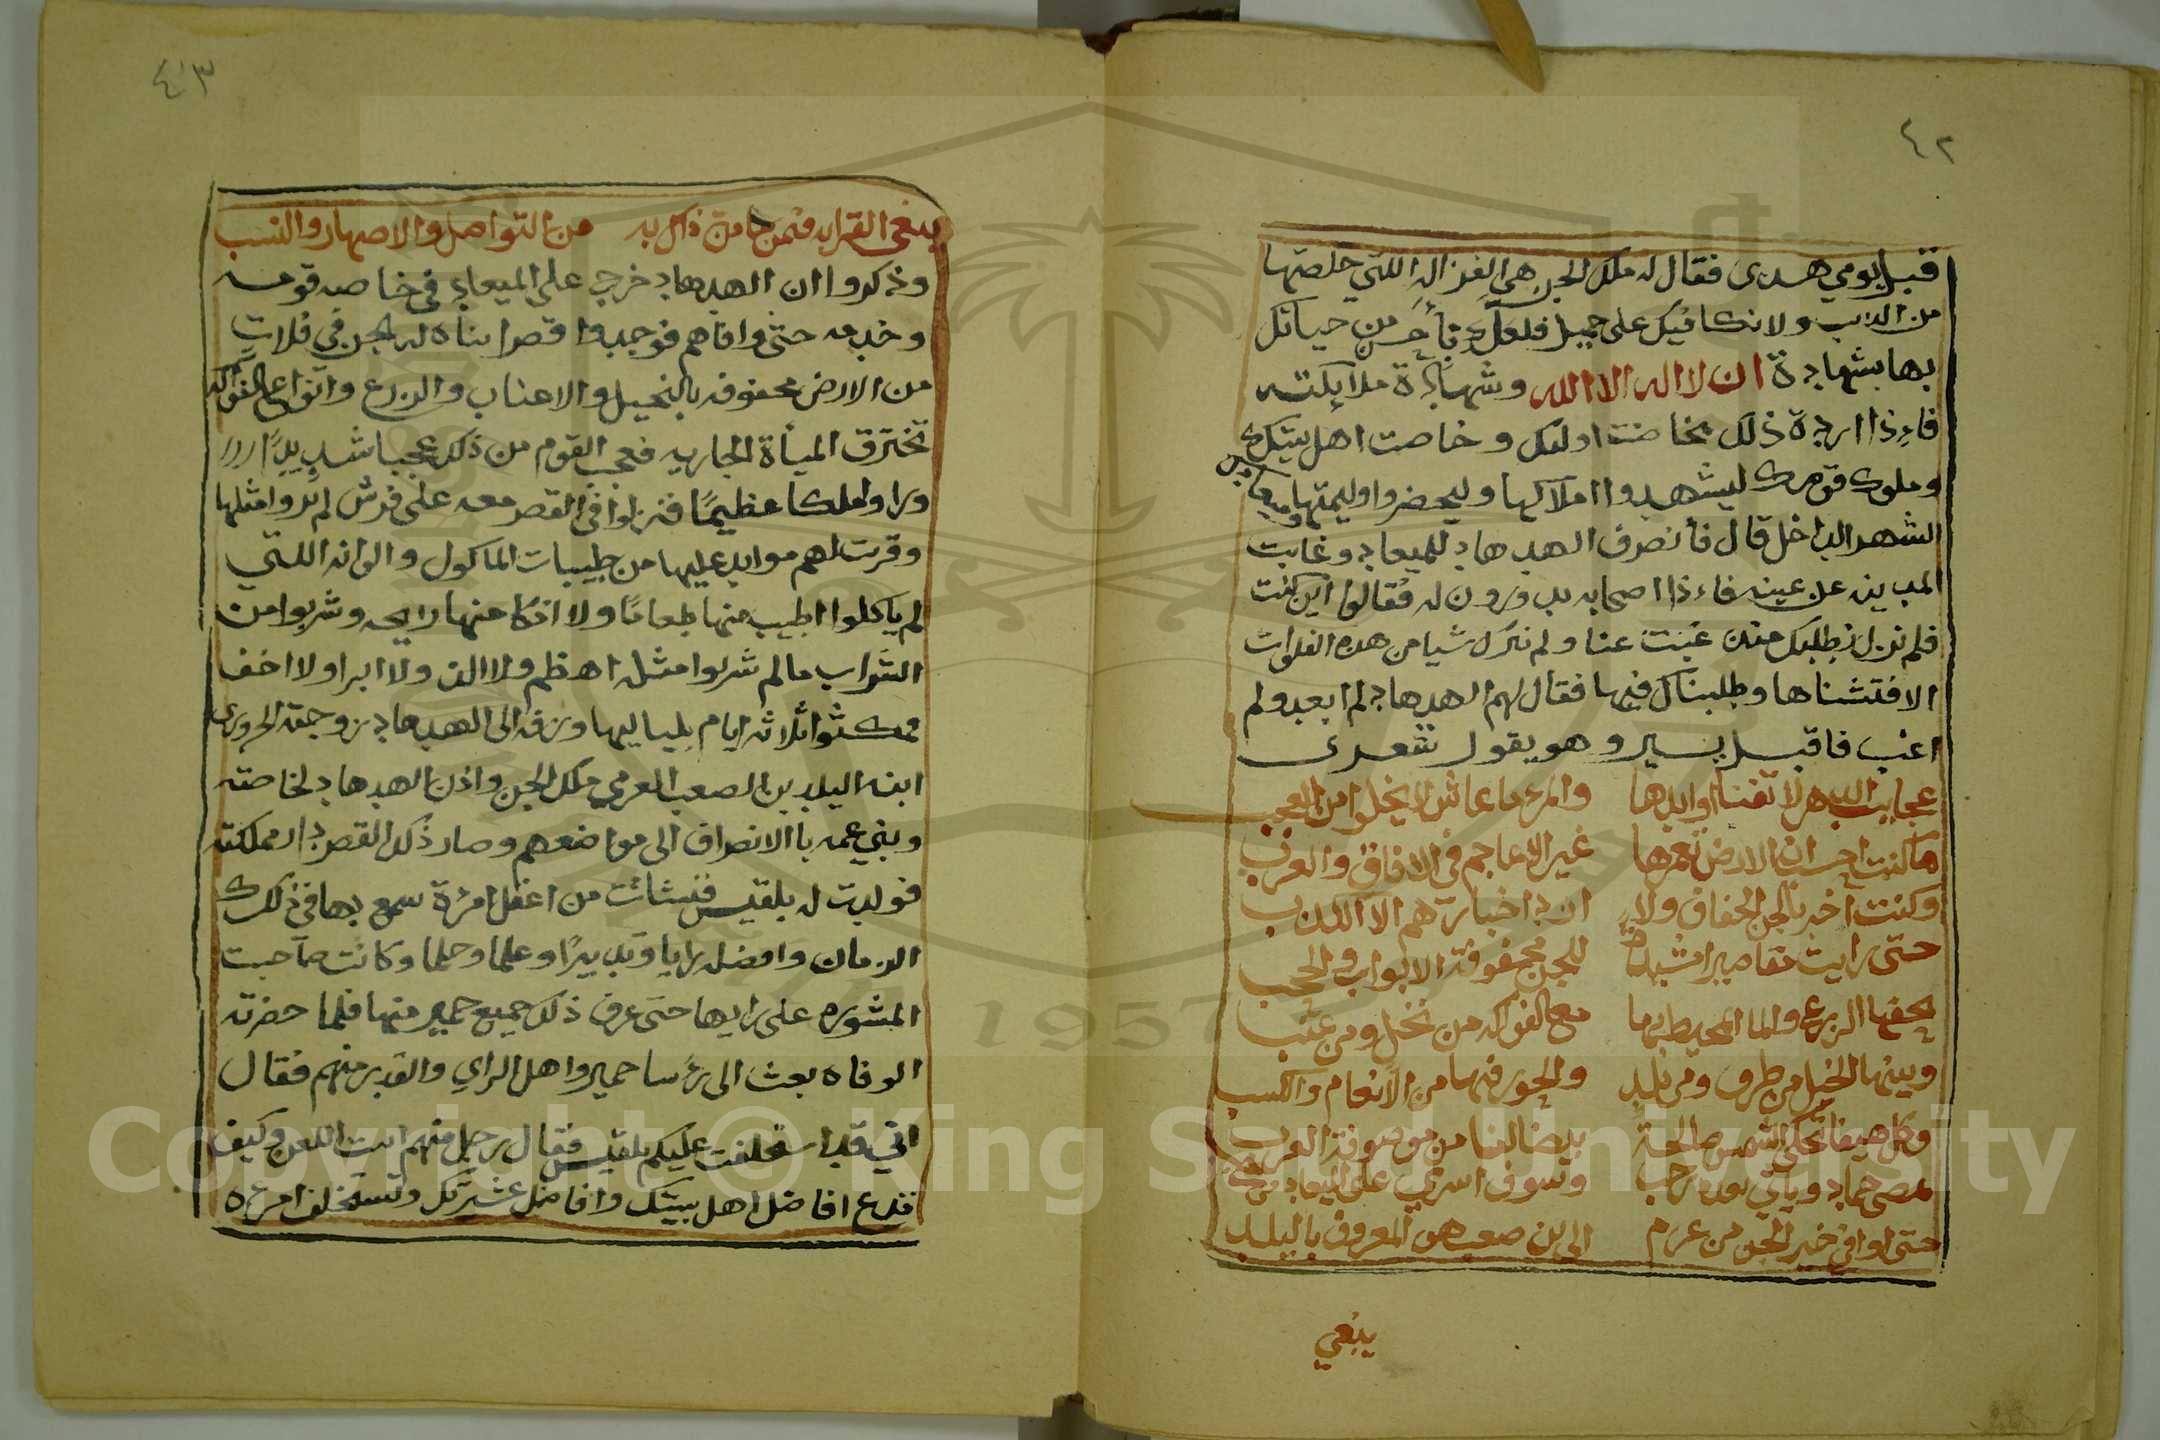 ٤٢
قبل يومي هدى فقال له ملك الجن هي الغزاله اللتي خلصتها
من الديب ولا نكافيك على جميل فلعلك باحسن من حياتك
بها بشهادة ان لا اله الا الله وشهادة ملائكته
فاءذا اردة ذلك بخاصت اولئك وخاصت اهل بيتك
وملوك قومك ليشهدوا املاكها وليحضروا وليمتها
الشهر الداخل قال فأنصرف الهدهاد للميعاد وغابت
المدينه عن عينه فاءذا اصحابه يدورون له فقالوا اين كنت
فلم نزل نطلبك منذ غبت عنا ولم نترك شيا من هذه الفلوات
الا فتشناها وطلبناك فيها فقال لهم الهدهاد لم ابعد ولم
اغب فاقبل يسير وهو يقول شعرى
عجايب الدهر لا تفنا اوابدها والمرء ما عاش لا يخلوا من العجب
ما كنت احسب ان الارض تعمرها غير الاعاجم في الافاق والعرب
وكنت اخبر بالجن الخفاف ولا ارد اخبارهم الا الكذب
حتى رايت مقاصيرا مشيدة للجن محفوفة الابواب والحجب
يحفها الزرع والما المحيط بها مع الفواكه من نخل ومن عنب
وبينها الخيل من طرف ومن تلد والحور فيها من الانعام والكسب
وكل هيفا تحكى الشمس طالحة بيضا لنا من موصوفة العرب
يمضى جماد وياتي بعده رجب وسوف اسري على الميعاد من رجب
حتى اوافي خير الجن من عرم الى بن صعب هو المعروف باليلب
يبغي
٤٣
يبغي القرابه فيمن من التواصل والاصهار والنسب
وذكروا ان الهدهاد خرج على الميعاد في خاصه قومه
وخدمه حتى وافاهم فوجدوا قصرا بناه له الجن في فلات
من الارض محفوفه بالنخيل والاعناب والزرع وانواع الفواكه
تخترق المياة الجاريه فعجب القوم من ذلك عجبا شديدًا
وراوا ملكا عظيمًا فنزلوا في القصر معه على فرش لم يروا مثلها
وقربت لهم موايد عليها من طيبات الماكول والوانه اللتي
لم ياكلوا اطيب منها طعامًا ولا اذكا منها رايحه وشربوا من
الشراب ما لم شربوا مثله اهظم ولا الذ ولا ابرا ولا اخف
فمكثوا ثلاثه ايام بلياليها وزفه الى الهدهاد زوجته الحرورى
ابنه اليلب بن الصعب العرمي ملك الجن واذن الهدهاد لخاصته
وبني عمه باالانصراف الى مواضعهم وصار ذلك القصر دار مملكته
فولدت له بلقيس فنشات من اعقل امرأة سمع بها في ذلك
الزمان وافضله رايا وتدبيرًا وعلما وحلما وكانت صاحبت
المشوره على رايها حتى عرف ذلك جميع حمير منها فلما حضرته
الوفاه بعث الى رءسا حمير واهل الراي والتدبير منهم فقال
اني قد استخلفت عليكم بلقيس فقال رجل منهم ابيت اللعن وكيف
تدع افاضل اهل بيتك وافاضل عشيرتك وتستخلف امرءه
Copyright © King Saud University
1957